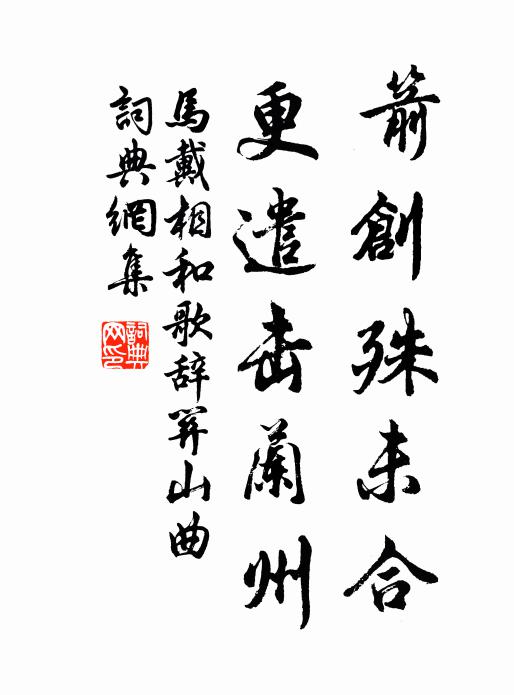 箭創殊未合
更遣击蘭州
馬戴相和歌辞関山曲
詞典網集
詞典网印